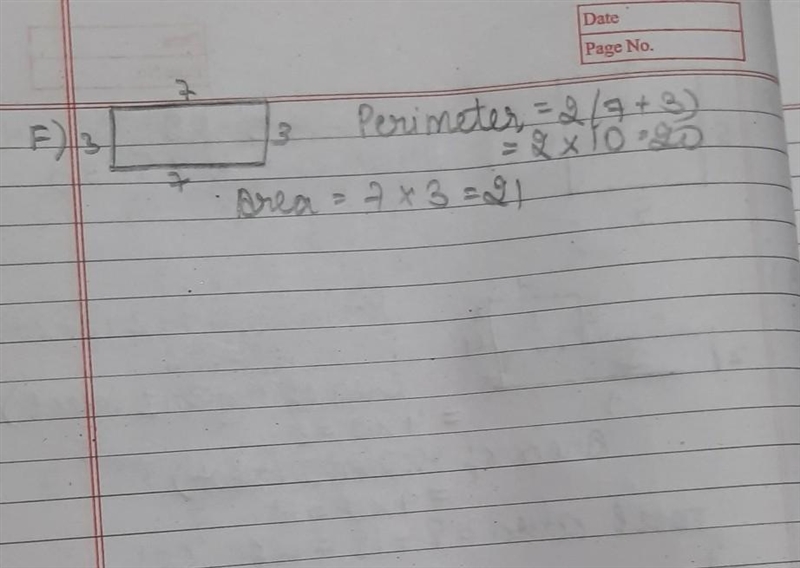 Date
Page No.
7
F) 3 3 Perimeter = 2(7+3)
= 2 × 10 = 20
7
Area = 7 × 3 = 21